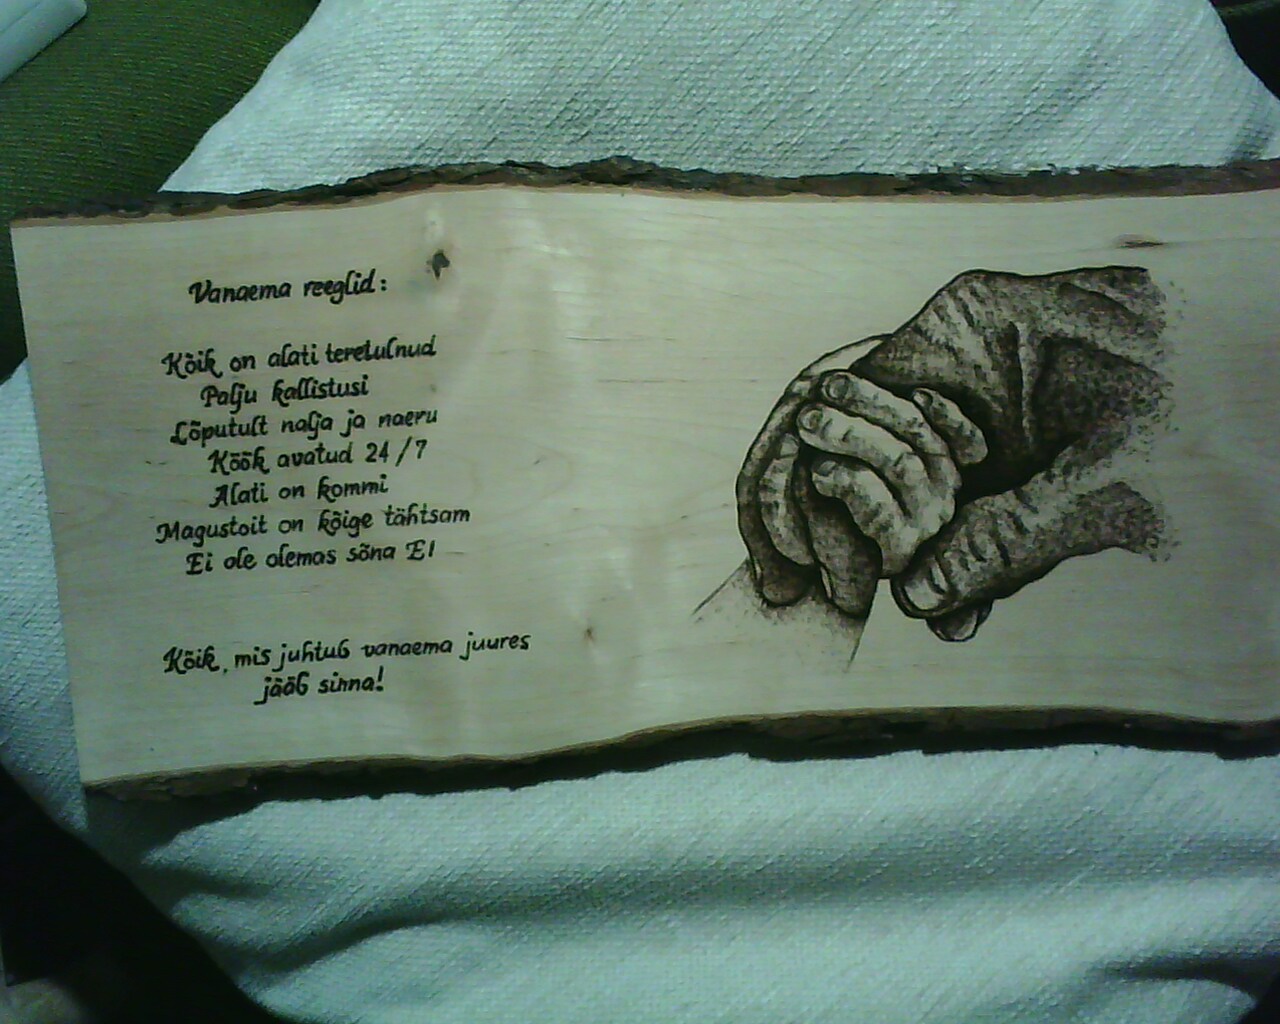 Vanaema reeglid:
Kõik on alati teretulnud
Palju kallistusi
Lõputult nalja ja naeru
Köök avatud 24/7
Alati on kommi
Magustoit on kõige tähtsam
Ei ole olemas sõna EI
Kõik, mis juhtub vanaema juures
jääb sinna!